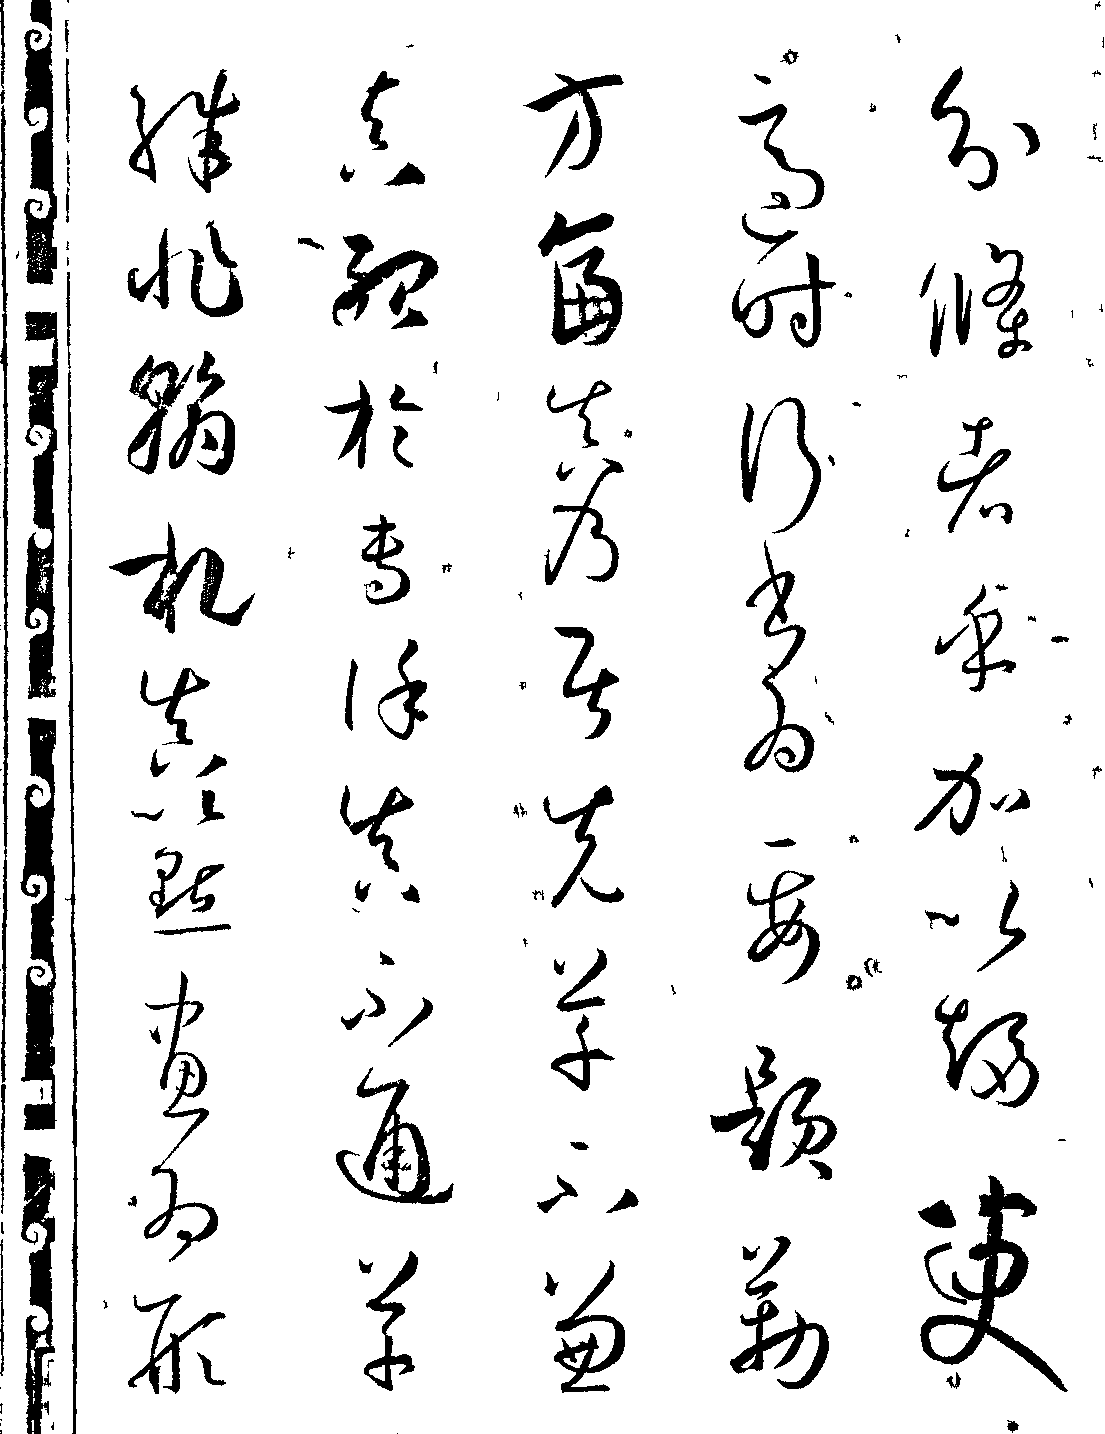 分條者乎加以趍叓
適時行書爲要題勒
方畐真乃居先草不兼
真殆於專謹真不通草
殊非翰札真以點畫爲形